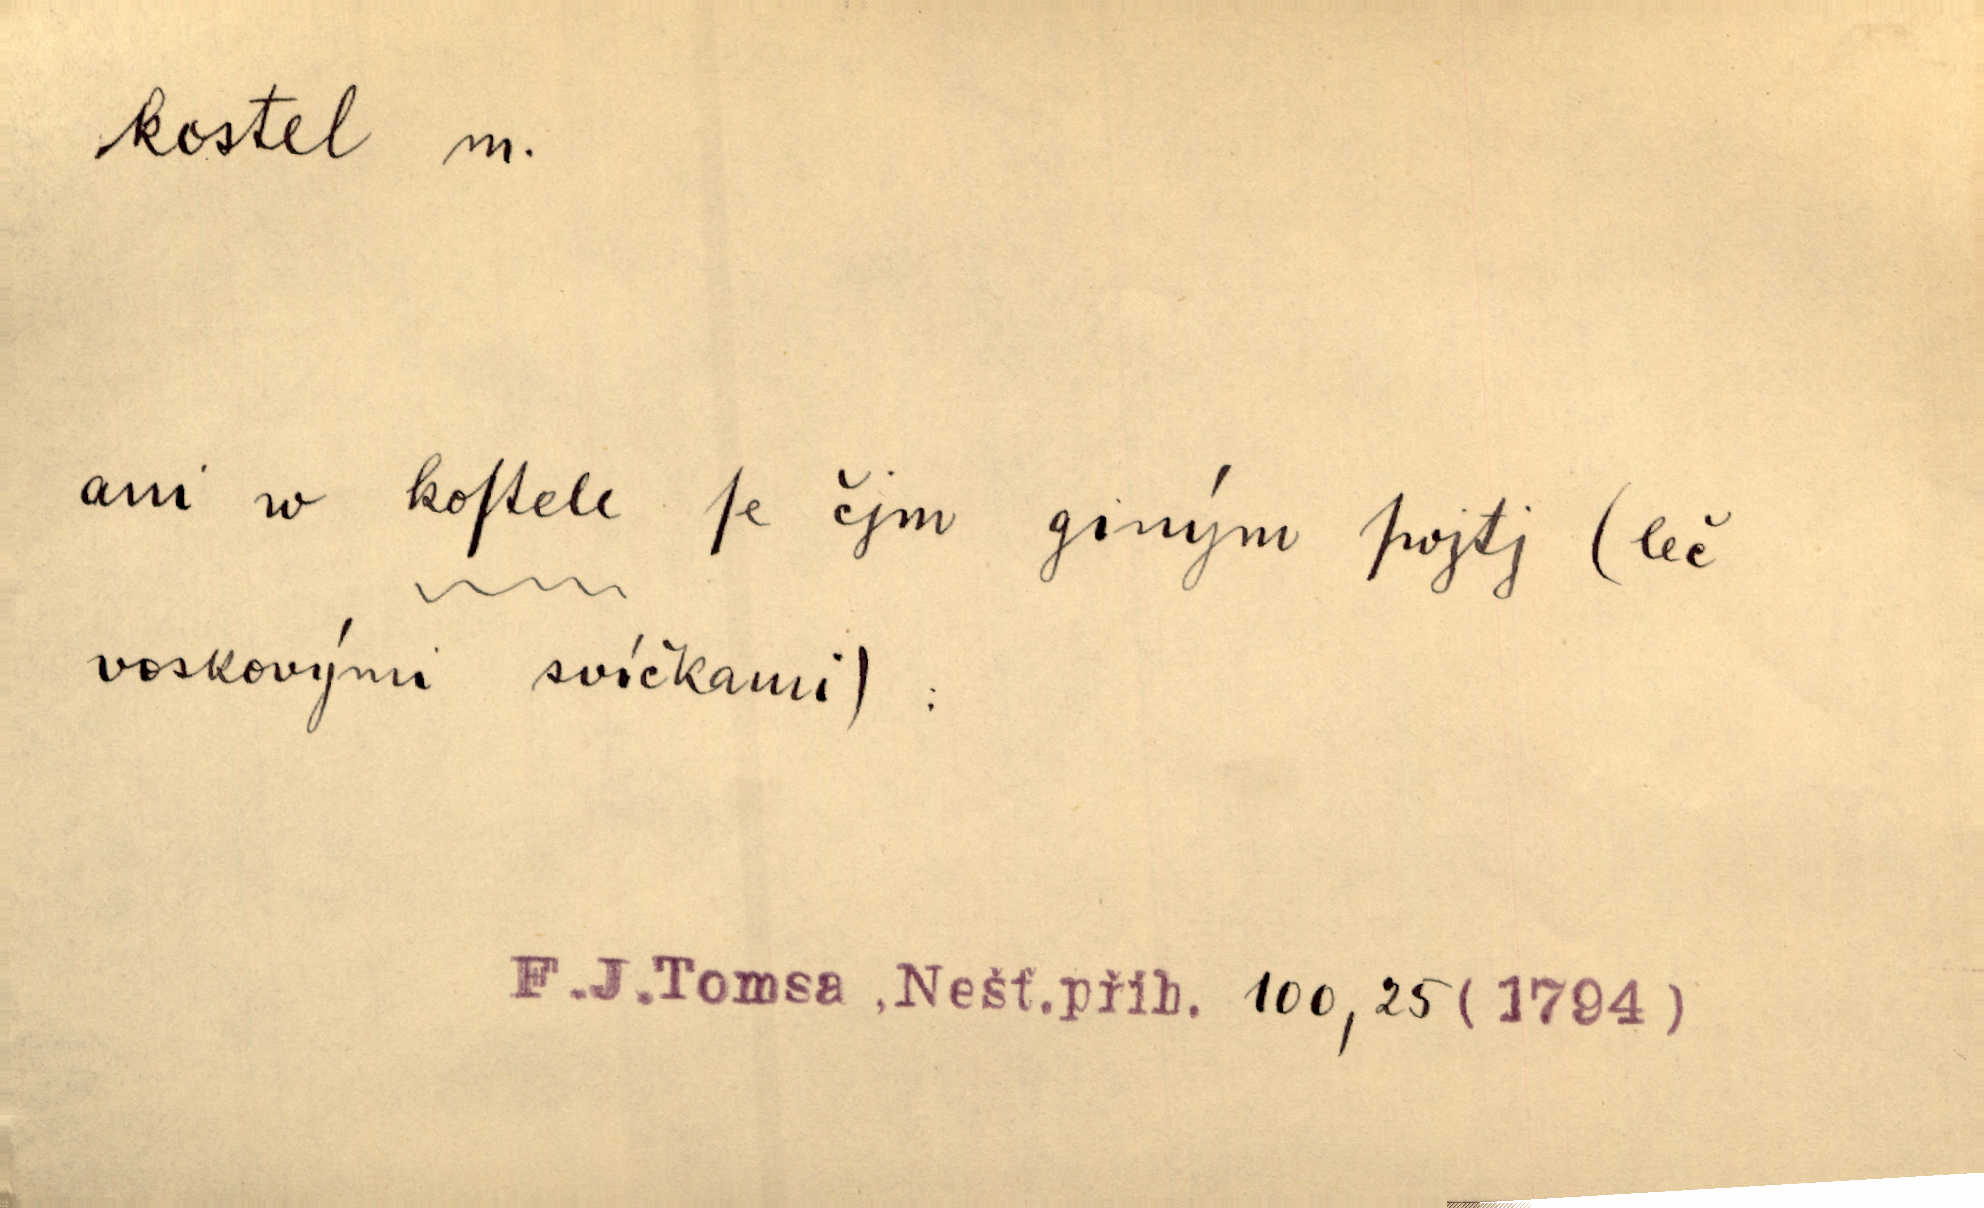 kostel m.
ani w koſtele ſe čjm giným ſwjtj (leč
voskovými svíčkami) :
F.J.Tomsa ,Nešť.příh. 100,25 (1794)